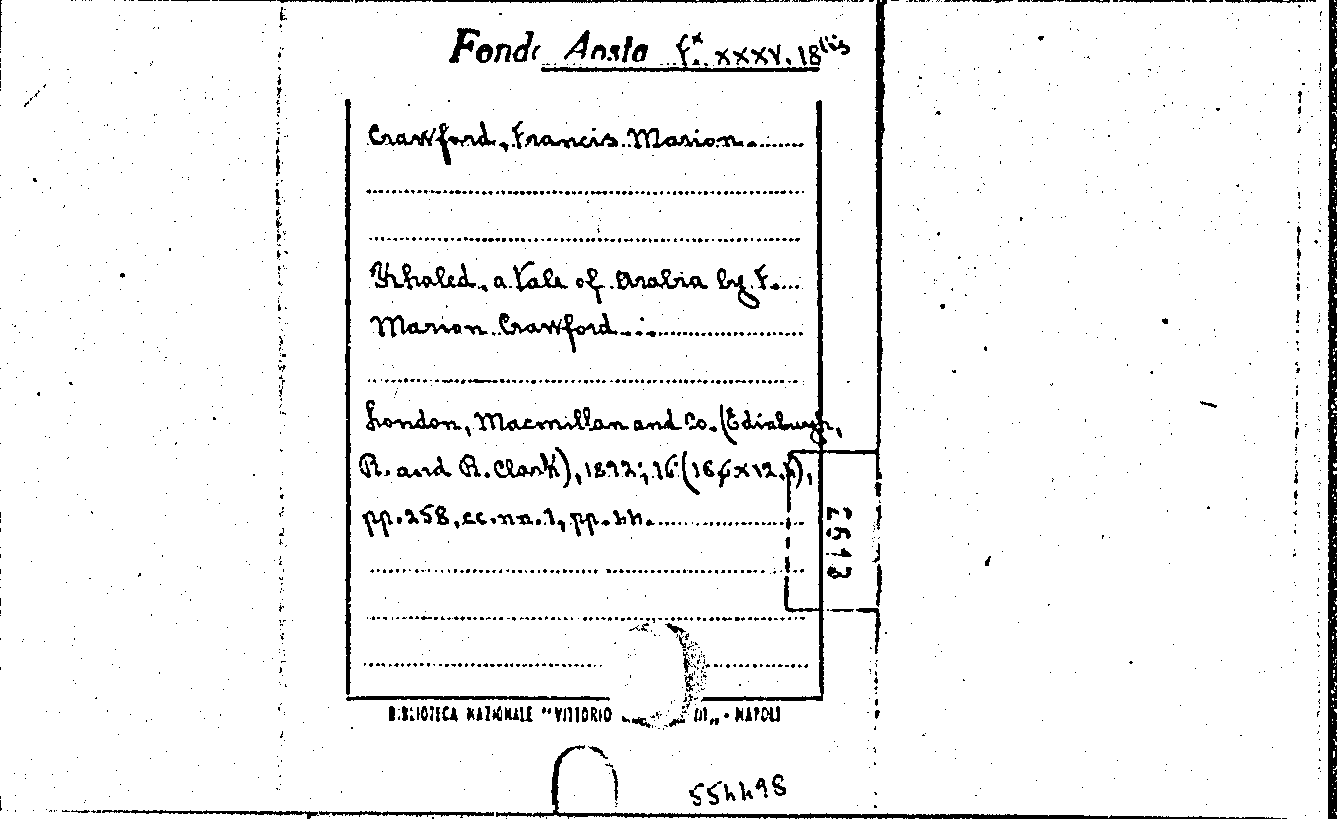 Fondo Aosta f.x XXXV. 18 bis
Crawford, Francis Marion.
Khaled, a tale of Arabia by F.
Marion Crawford.
London, Macmillan and Co. (Edinburgh,
R. and R. Clark), 1892; 16°
pp. 258, cc.nn. 1, pp. 44.
BIBLIOTECA NAZIONALE "VITTORIO III„ - NAPOLI
554498